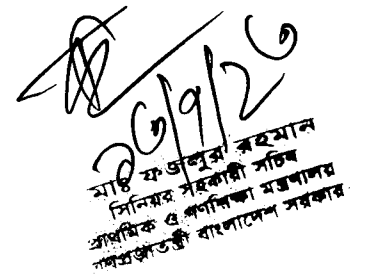 মোঃ ফজলুর রহমান
সিনিয়র সহকারী সচিব
প্রাথমিক ও গণশিক্ষা মন্ত্রণালয়
গণপ্রজাতন্ত্রী বাংলাদেশ সরকার